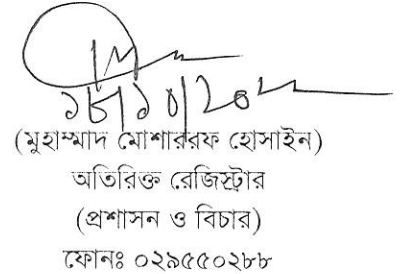 (মুহাম্মাদ মোশাররফ হোসাইন)
অতিরিক্ত রেজিস্ট্রার
(প্রশাসন ও বিচার)
ফোনঃ ০২৯৫৫০২৮৮